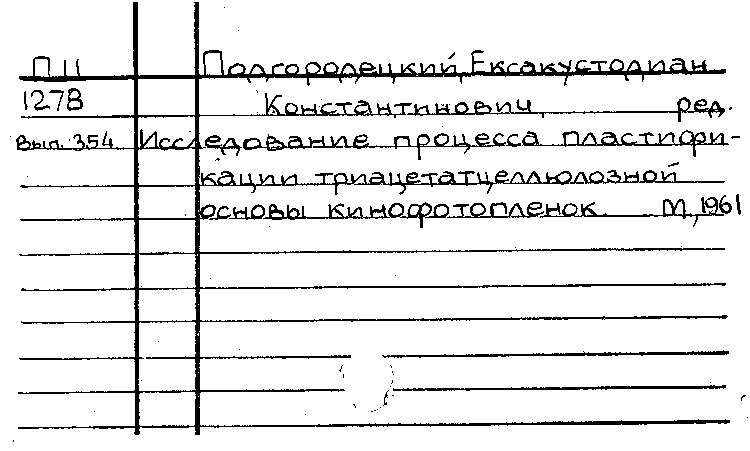 П11 Подгородецкий, Ексакустодиан
1278 Константинович, ред.
Вып. 354 Исследование процесса пластифи-
кации триацетатцеллюлозной
основы кинофотопленок. М., 1961